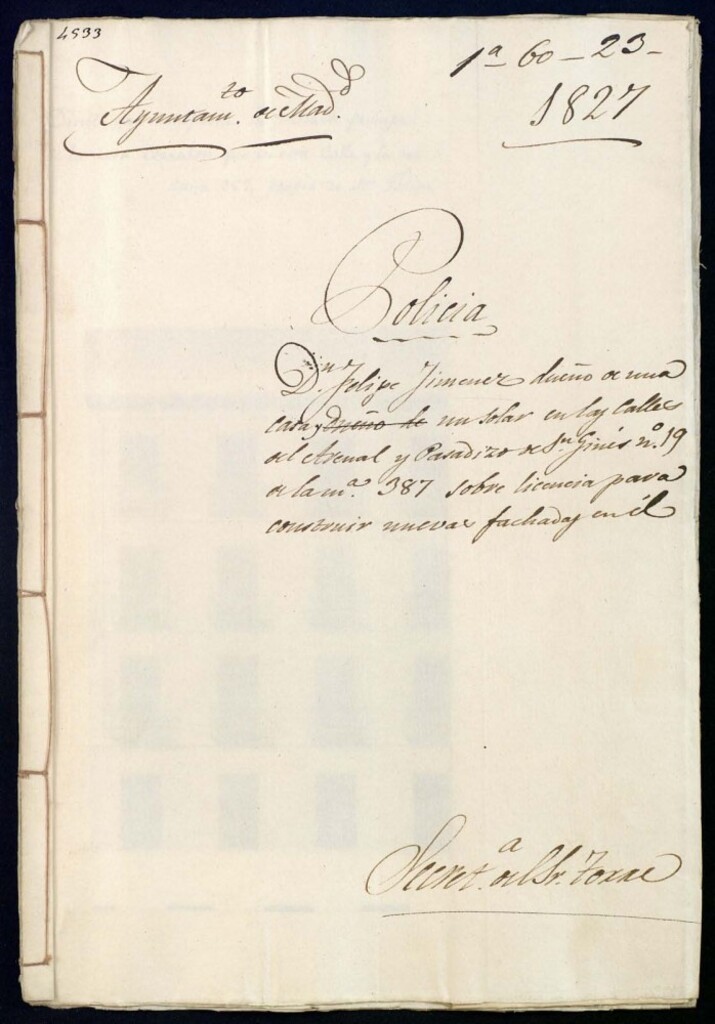 4533
1ª 60-23-
Ayuntam.to de Mad.d
1827
Policia
D.n Felipe Jimenez dueño de una
casa y dueño de un solar en las Calles
del Arenal y Pasadizo de S.n Ginés n.º 19
de la m.a 387 sobre licencia para
construir nuevas fachadas en él
Secret.a del Sr. Torre